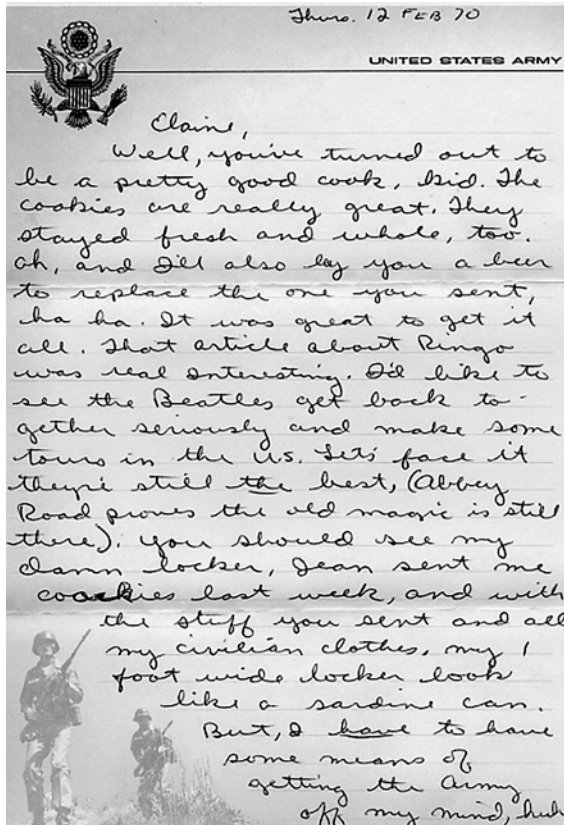 Thurs. 12 FEB 70
UNITED STATES ARMY
Elaine,
Well, you've turned out to
be a pretty good cook, kid. The
cookies are really great. They
stayed fresh and whole, too.
Oh, and I'll also by you a beer
to replace the one you sent,
ha ha. It was great to get it
all. That article about Ringo
was real interesting. I'd like to
see the Beatles get back to-
gether seriously and make some
tours in the U.S. Let's face it
they're still the best, (Abbey
Road proves the old magic is still
there). You should see my
damn locker, Jean sent me
cookies last week, and with
the stuff you sent and all
my civilian clothes, my 1
foot wide locker look
like a sardine can.
But, I have to have
some means of
getting the Army
off my mind, huh